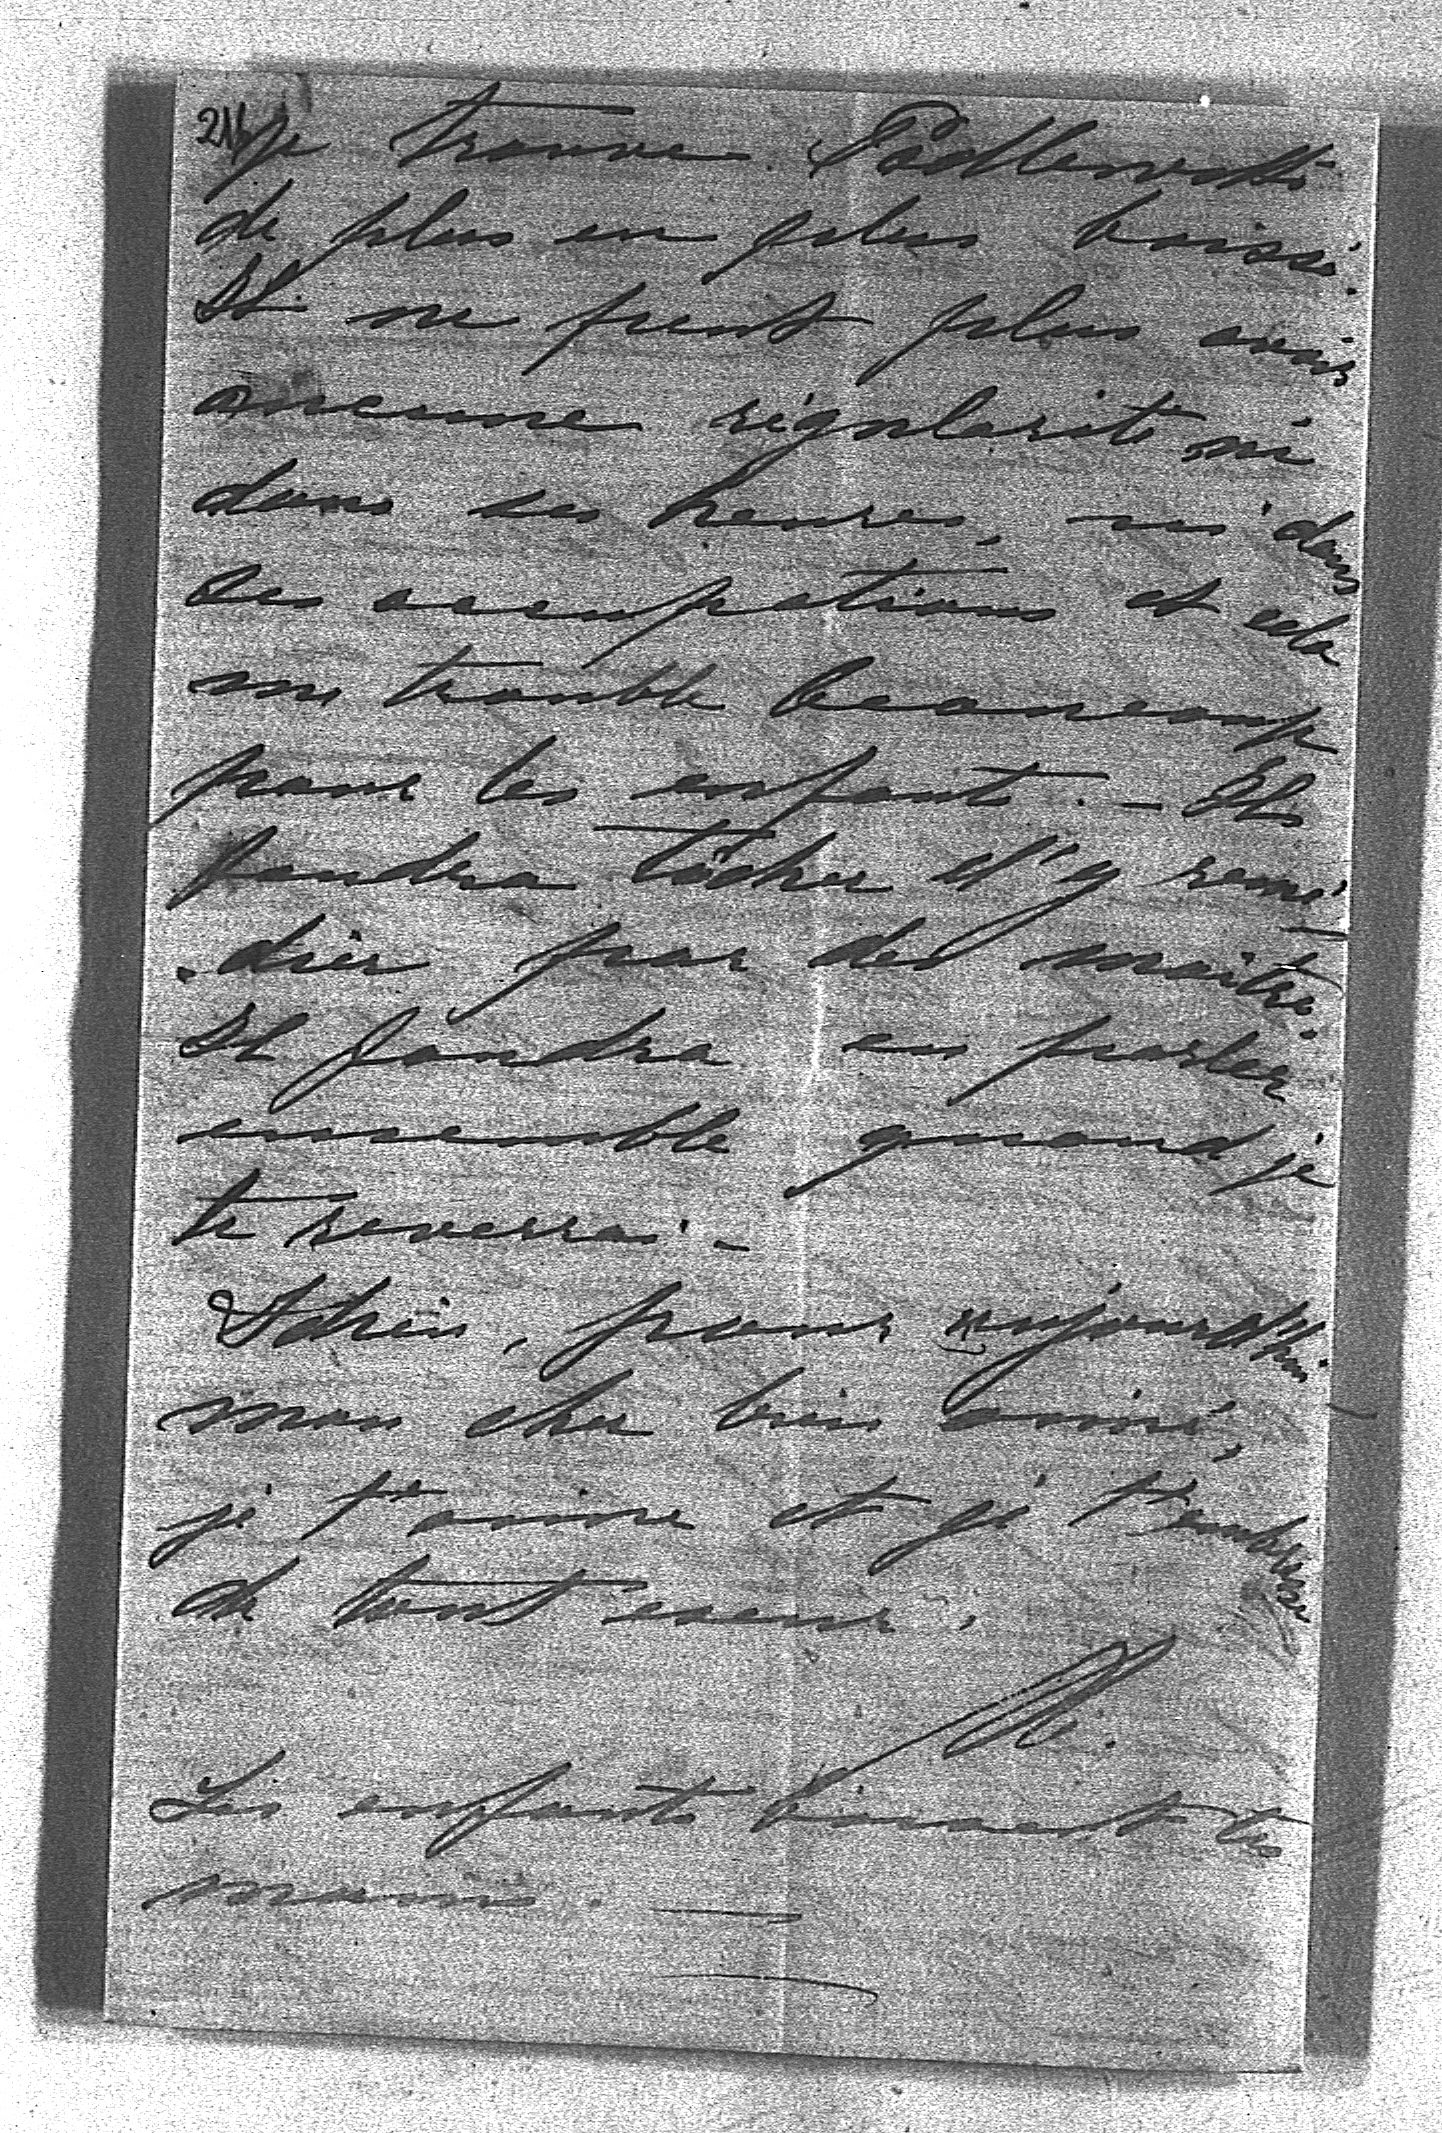 216 je trouve Podlewski
de plus en plus baissé.
Il ne peut plus avoir
aucune régularité ni
dans ses heures, ni dans
ses occupations et cela
me trouble beaucoup
pour les enfants. — Il
faudra tâcher d'y remé-
-dier par des maîtres.
Il faudra en parler
ensemble quand je
te reverrai. —
Adieu, pour aujourd'hui
mon cher bien aimé,
je t'aime et je t'embrasse
de tout coeur.
M.
Les enfants baisent tes
mains. —